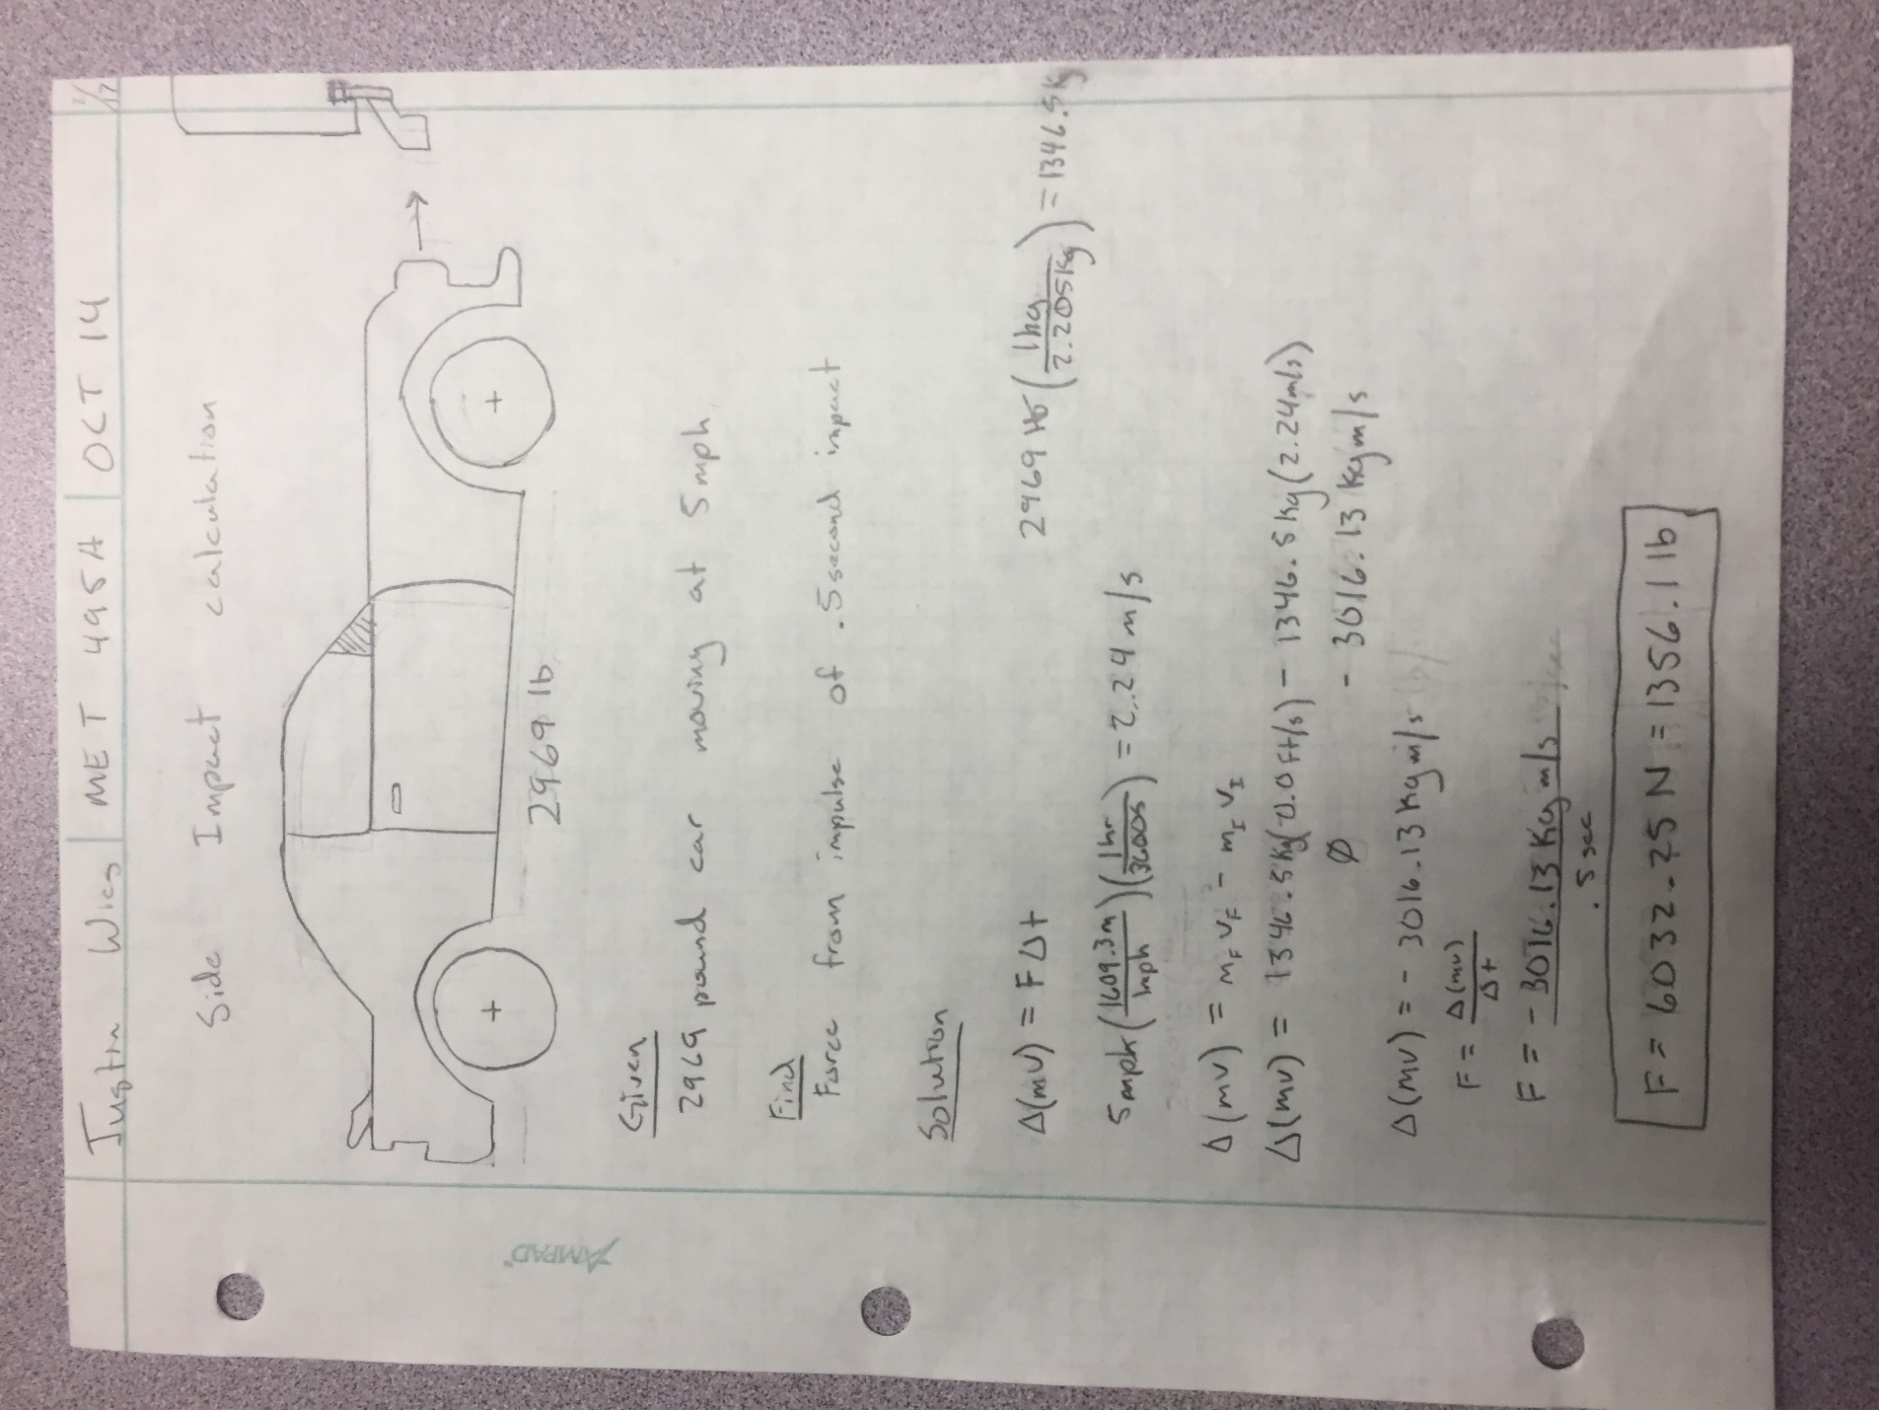 Justin Wies | MET 495A | OCT 14 2/12
Side Impact calculation
2969 lb
Given
2969 pound car moving at 5mph
Find
Force from impulse of .5 second impact
Solution
Δ(mv) = F Δt 2969 lb (1kg / 2.205kg) = 1346.5kg
5mph (1609.3m / 1mph) (1hr / 3600s) = 2.24 m/s
Δ(mv) = mF vF - mI vI
Δ(mv) = 1346.5kg(0.0 ft/s) - 1346.5kg(2.24m/s)
Ø - 3016.13 kg m/s
Δ(mv) = - 3016.13 kg m/s
F = Δ(mv) / Δt
F = -3016.13 kg m/s / .5 sec
F = 6032.25 N = 1356.1 lb
AMPAD